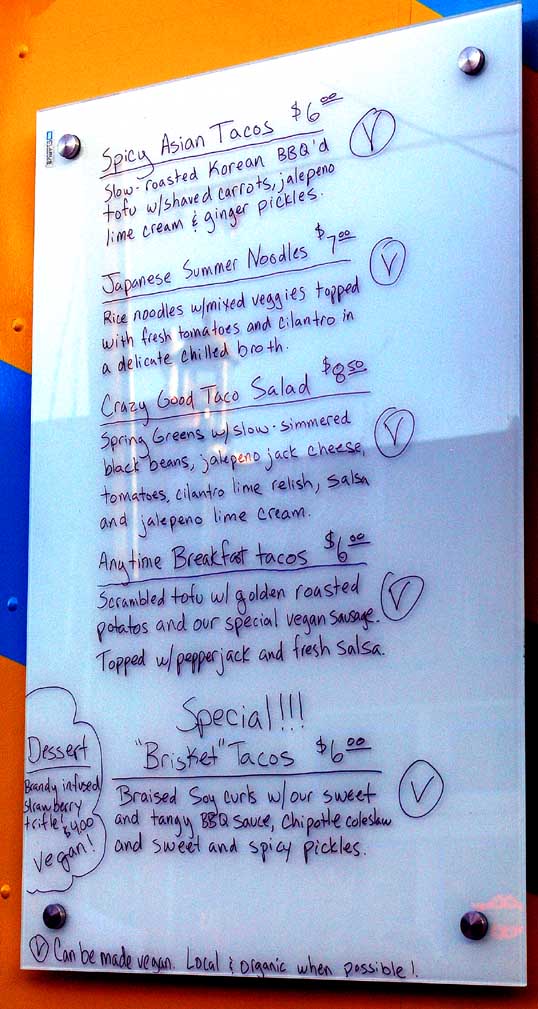 Spicy Asian Tacos $6.00
V
Slow-roasted Korean BBQ'd
tofu w/shaved carrots, jalepeno
lime cream & ginger pickles.
Japanese Summer Noodles $7.00
V
Rice noodles w/mixed veggies topped
with fresh tomatoes and cilantro in
a delicate chilled broth.
Crazy Good Taco Salad $8.50
V
Spring Greens w/slow-simmered
black beans, jalepeno jack cheese,
tomatoes, cilantro lime relish, salsa
and jalepeno lime cream.
Anytime Breakfast tacos $6.00
V
Scrambled tofu w/ golden roasted
potatos and our special vegan sausage.
Topped w/pepperjack and fresh salsa.
Special!!!!
"Brisket" Tacos $6.00
V
Braised Soy curls w/our sweet
and tangy BBQ sauce, chipotle coleslaw
and sweet and spicy pickles.
Dessert
Brandy infused
strawberry
trifle! $4.00
vegan!
V Can be made vegan. Local & Organic when possible!